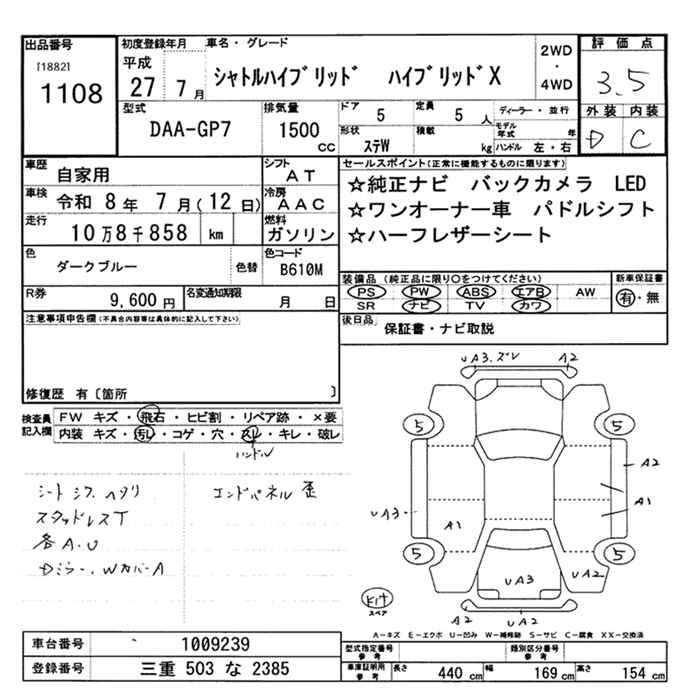 出品番号
[1882]
1108
初度登録年月
平成
27 7 月
車名・グレード
シャトルハイブリッド ハイブリッドX
2WD
・
4WD
評価点
3.5
外装 内装
D C
型式
DAA-GP7
排気量
1500 cc
ドア 5
定員 5 人
ディーラー・並行
モデル年式 年
形状 ステW
積載 kg
ハンドル 左・右
車歴 自家用
シフト AT
車検 令和 8 年 7 月 (12 日)
冷房 AAC
走行 10 万 8 千 858 km
燃料 ガソリン
色 ダークブルー 色替
色コード B610M
R券 9,600 円
名変通知期限 月 日
セールスポイント(正常に機能するものに限ります)
☆純正ナビ バックカメラ LED
☆ワンオーナー車 パドルシフト
☆ハーフレザーシート
装備品 (純正品に限り○をつけてください)
PS PW ABS エアB AW
SR ナビ TV カワ
新車保証書
有・無
後日品 保証書・ナビ取説
注意事項申告欄(不具合内容等は具体的に記入して下さい)
修復歴 有〔箇所 〕
検査員記入欄
FW キズ・飛石・ヒビ割・リペア跡・×要
内装 キズ・汚レ・コゲ・穴・スレ・キレ・破レ
ハンドル
シートシワ、ヘタリ
スタッドレスT
各A.U
Dミラー、WカバーA
エンドパネル歪
UA3.ズレ
A2
5
5
A2
UA3
A1
A1
5
5
UA3
UA2
A2
UA2
キット
スペア
A-キズ E-エクボ U-凹み W-補修跡 S-サビ C-腐食 XX-交換済
車台番号 1009239
登録番号 三重 503 な 2385
型式指定番号 参考
類別区分番号 参考
車庫証明用 参考
長さ 440 cm
幅 169 cm
高さ 154 cm